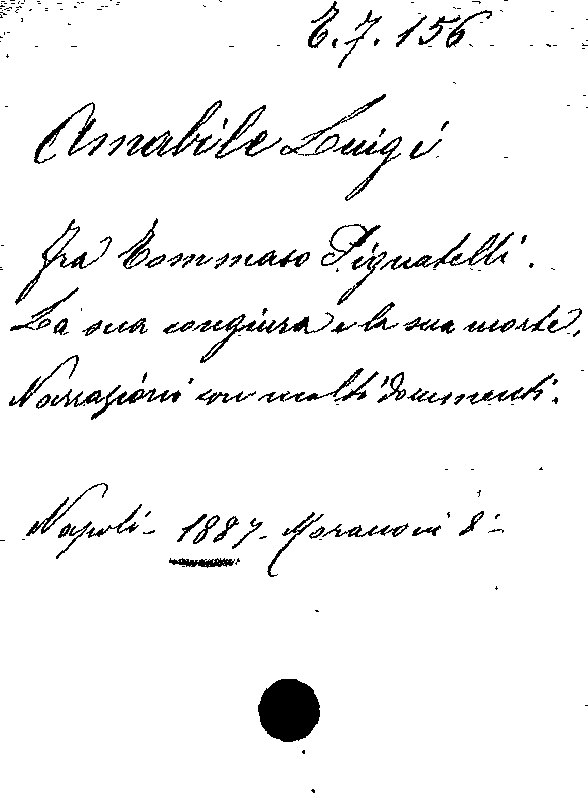 E.7.156
Amabile Luigi
Fra Tommaso Pignatelli.
La sua congiura e la sua morte.
Narrazioni con molti documenti.
Napoli - 1887 - Moranovi 8º -